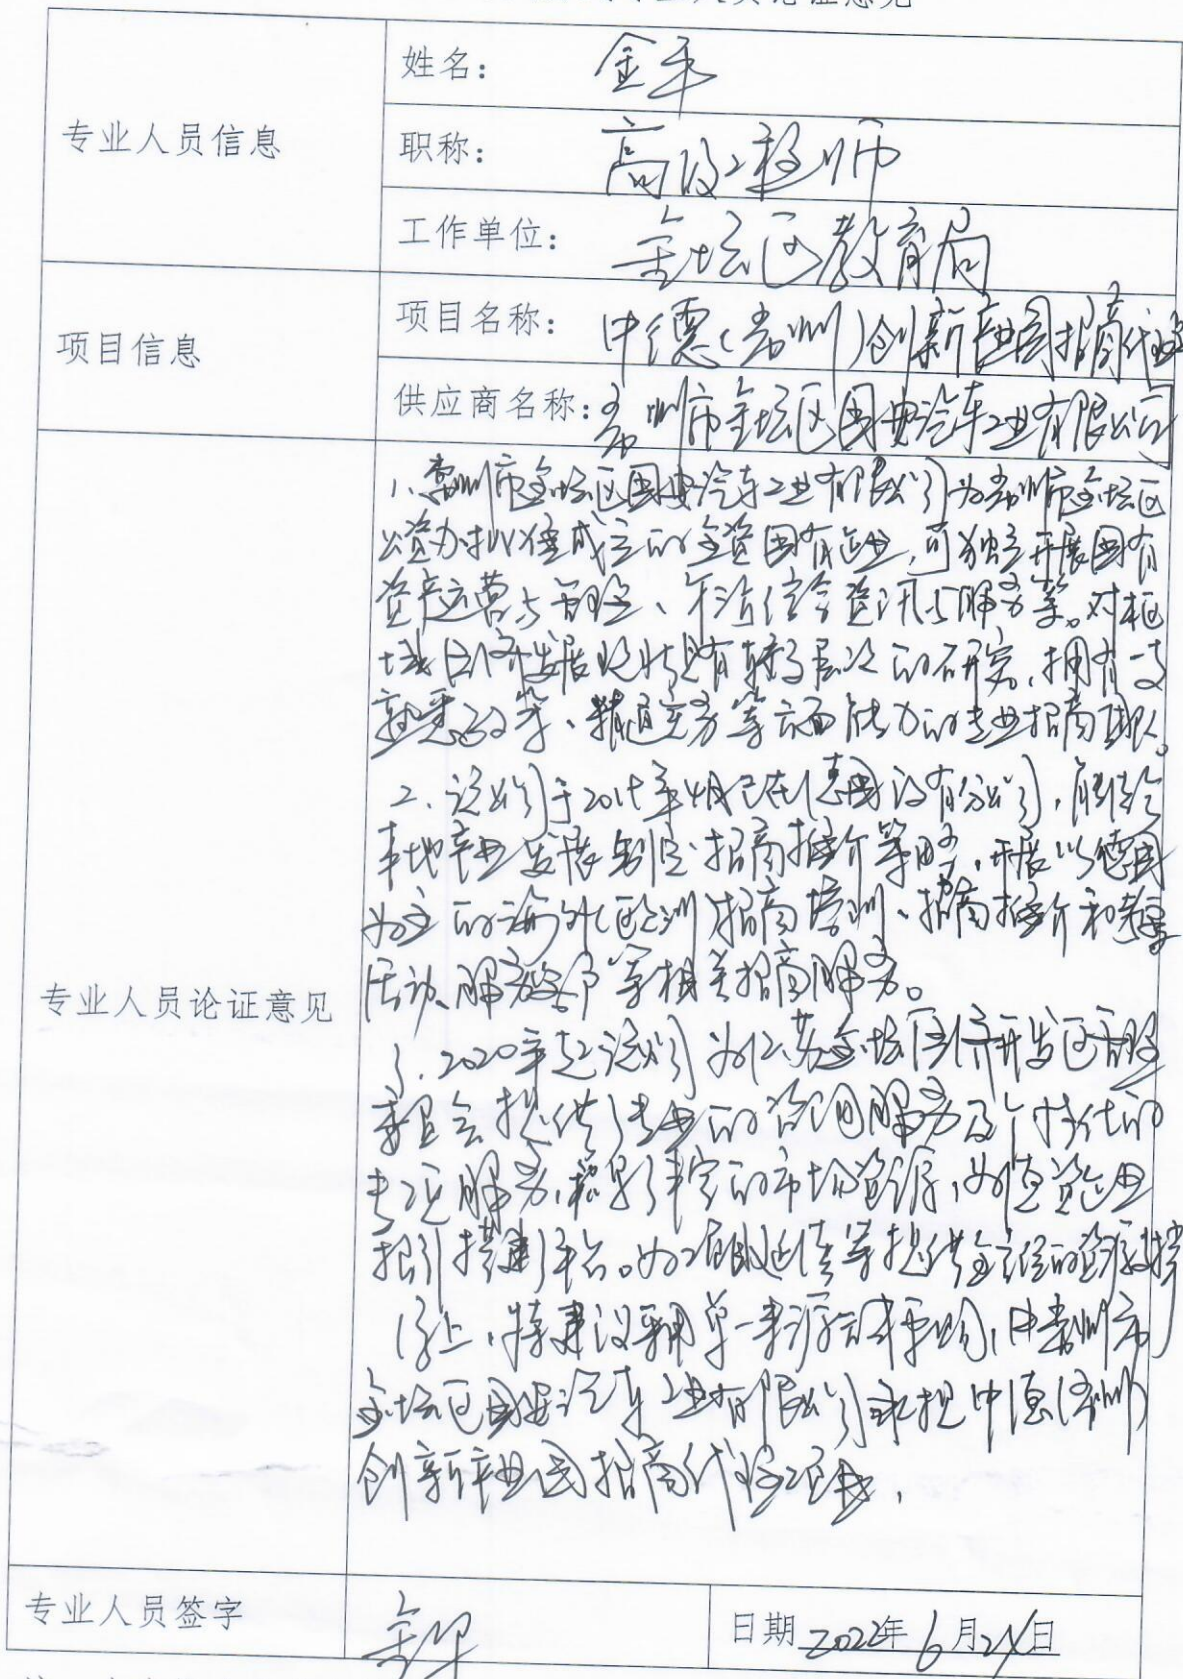 业人员论证意见
专业人员信息
姓名：金平
职称：高级工程师
工作单位：金坛区教育局
项目信息
项目名称：中德（常州）创新产业园招商代理
供应商名称：常州市金坛区国典汽车工业有限公司
专业人员论证意见
1、常州市金坛区国典汽车工业有限公司为常州市金坛区
公资办批准成立的全资国有企业，可独立开展国有
资产运营与管理、 资讯与服务等。对
域经济发展 有较高层次的研究，拥有一支
熟悉政策、精通业务等方面能力的专业招商团队。
2、该公司于 年 月已在德国设有分公司，能结合
本地产业发展制定招商推介策略，开展以德国
为主的海外（欧洲）招商培训、招商推介和
活动、服务 等相关招商服务。
3、2020年起该公司为江苏金坛经济开发区管理
委员会提供了专业的咨询服务及个性化的
专项服务，积累了丰富的市场资源，为德资企业
招引搭建了平台。为 等提供全方位的资源支撑
综上，特建议采用单一来源方式采购，由常州市
金坛区国典汽车工业有限公司承担中德（常州）
创新产业园招商代理项目。
专业人员签字
金平
日期 2022年6月24日